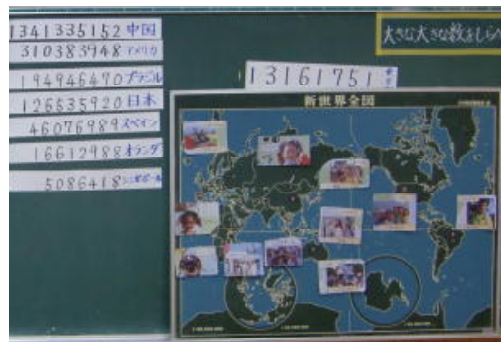 1341335152 中国
310383948 アメリカ
194946470 ブラジル
126535920 日本
46076989 スペイン
16612988 オランダ
5086418 シンガポール
大きな大きな数をしらべ
13161751
新世界全図